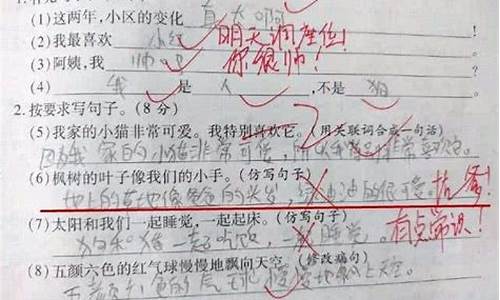 (1)这两年,小区的变化 真大啊
(2)我最喜欢 小红 明天调座位!
(3)阿姨,我 帅吧 你很帅!
(4) 我 是 人 ,不是 狗
2.按要求写句子。(8 分)
(5)我家的小猫非常可爱。我特别喜欢它。(用关联词合成一句话)
因为我家的小猫非常可爱,所以我特别非常喜欢它。
(6)枫树的叶子像我们的小手。(仿写句子)
地上的草地像爸爸的头发,绿油油的很可爱。
(7)太阳和我们一起睡觉,一起起床。(仿写句子)
狗和猪一起吃饭,一起睡觉。有点常识!
(8)五颜六色的红气球慢慢地飘向天空。(修改病句)
五颜六色的气球慢慢地飘上天空。